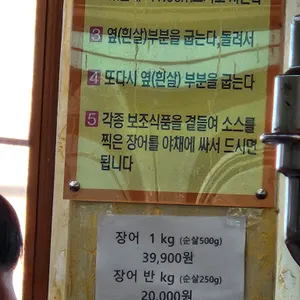 3 옆(흰살)부분을 굽는다,돌려서
4 또다시 옆(흰살) 부분을 굽는다
5 각종 보조식품을 곁들여 소스를
찍은 장어를 야채에 싸서 드시면
됩니다
장어 1 kg (순살500g)
39,900원
장어 반 kg (순살250g)
20,000원